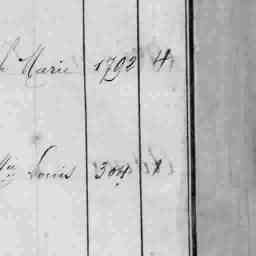 Marie 1792 4
Louis 304 1